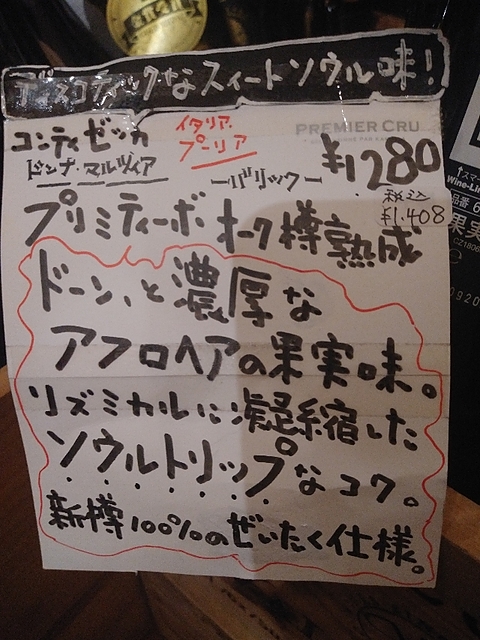 ディスコティックなスィートソウル味!
コンティゼッカ
イタリア.
プーリア
PREMIER CRU
ドンナ・マルツィア
ーバリックー
¥1280
税込
¥1.408
プリミティーボ オーク樽熟成
ドーン、と濃厚な
アフロヘアの果実味。
リズミカルに凝縮した
ソウルトリップなコク。
新樽100%のぜいたく仕様。
↑スマー
Wine-Lin
品番 6
果実
CZ1806
0920